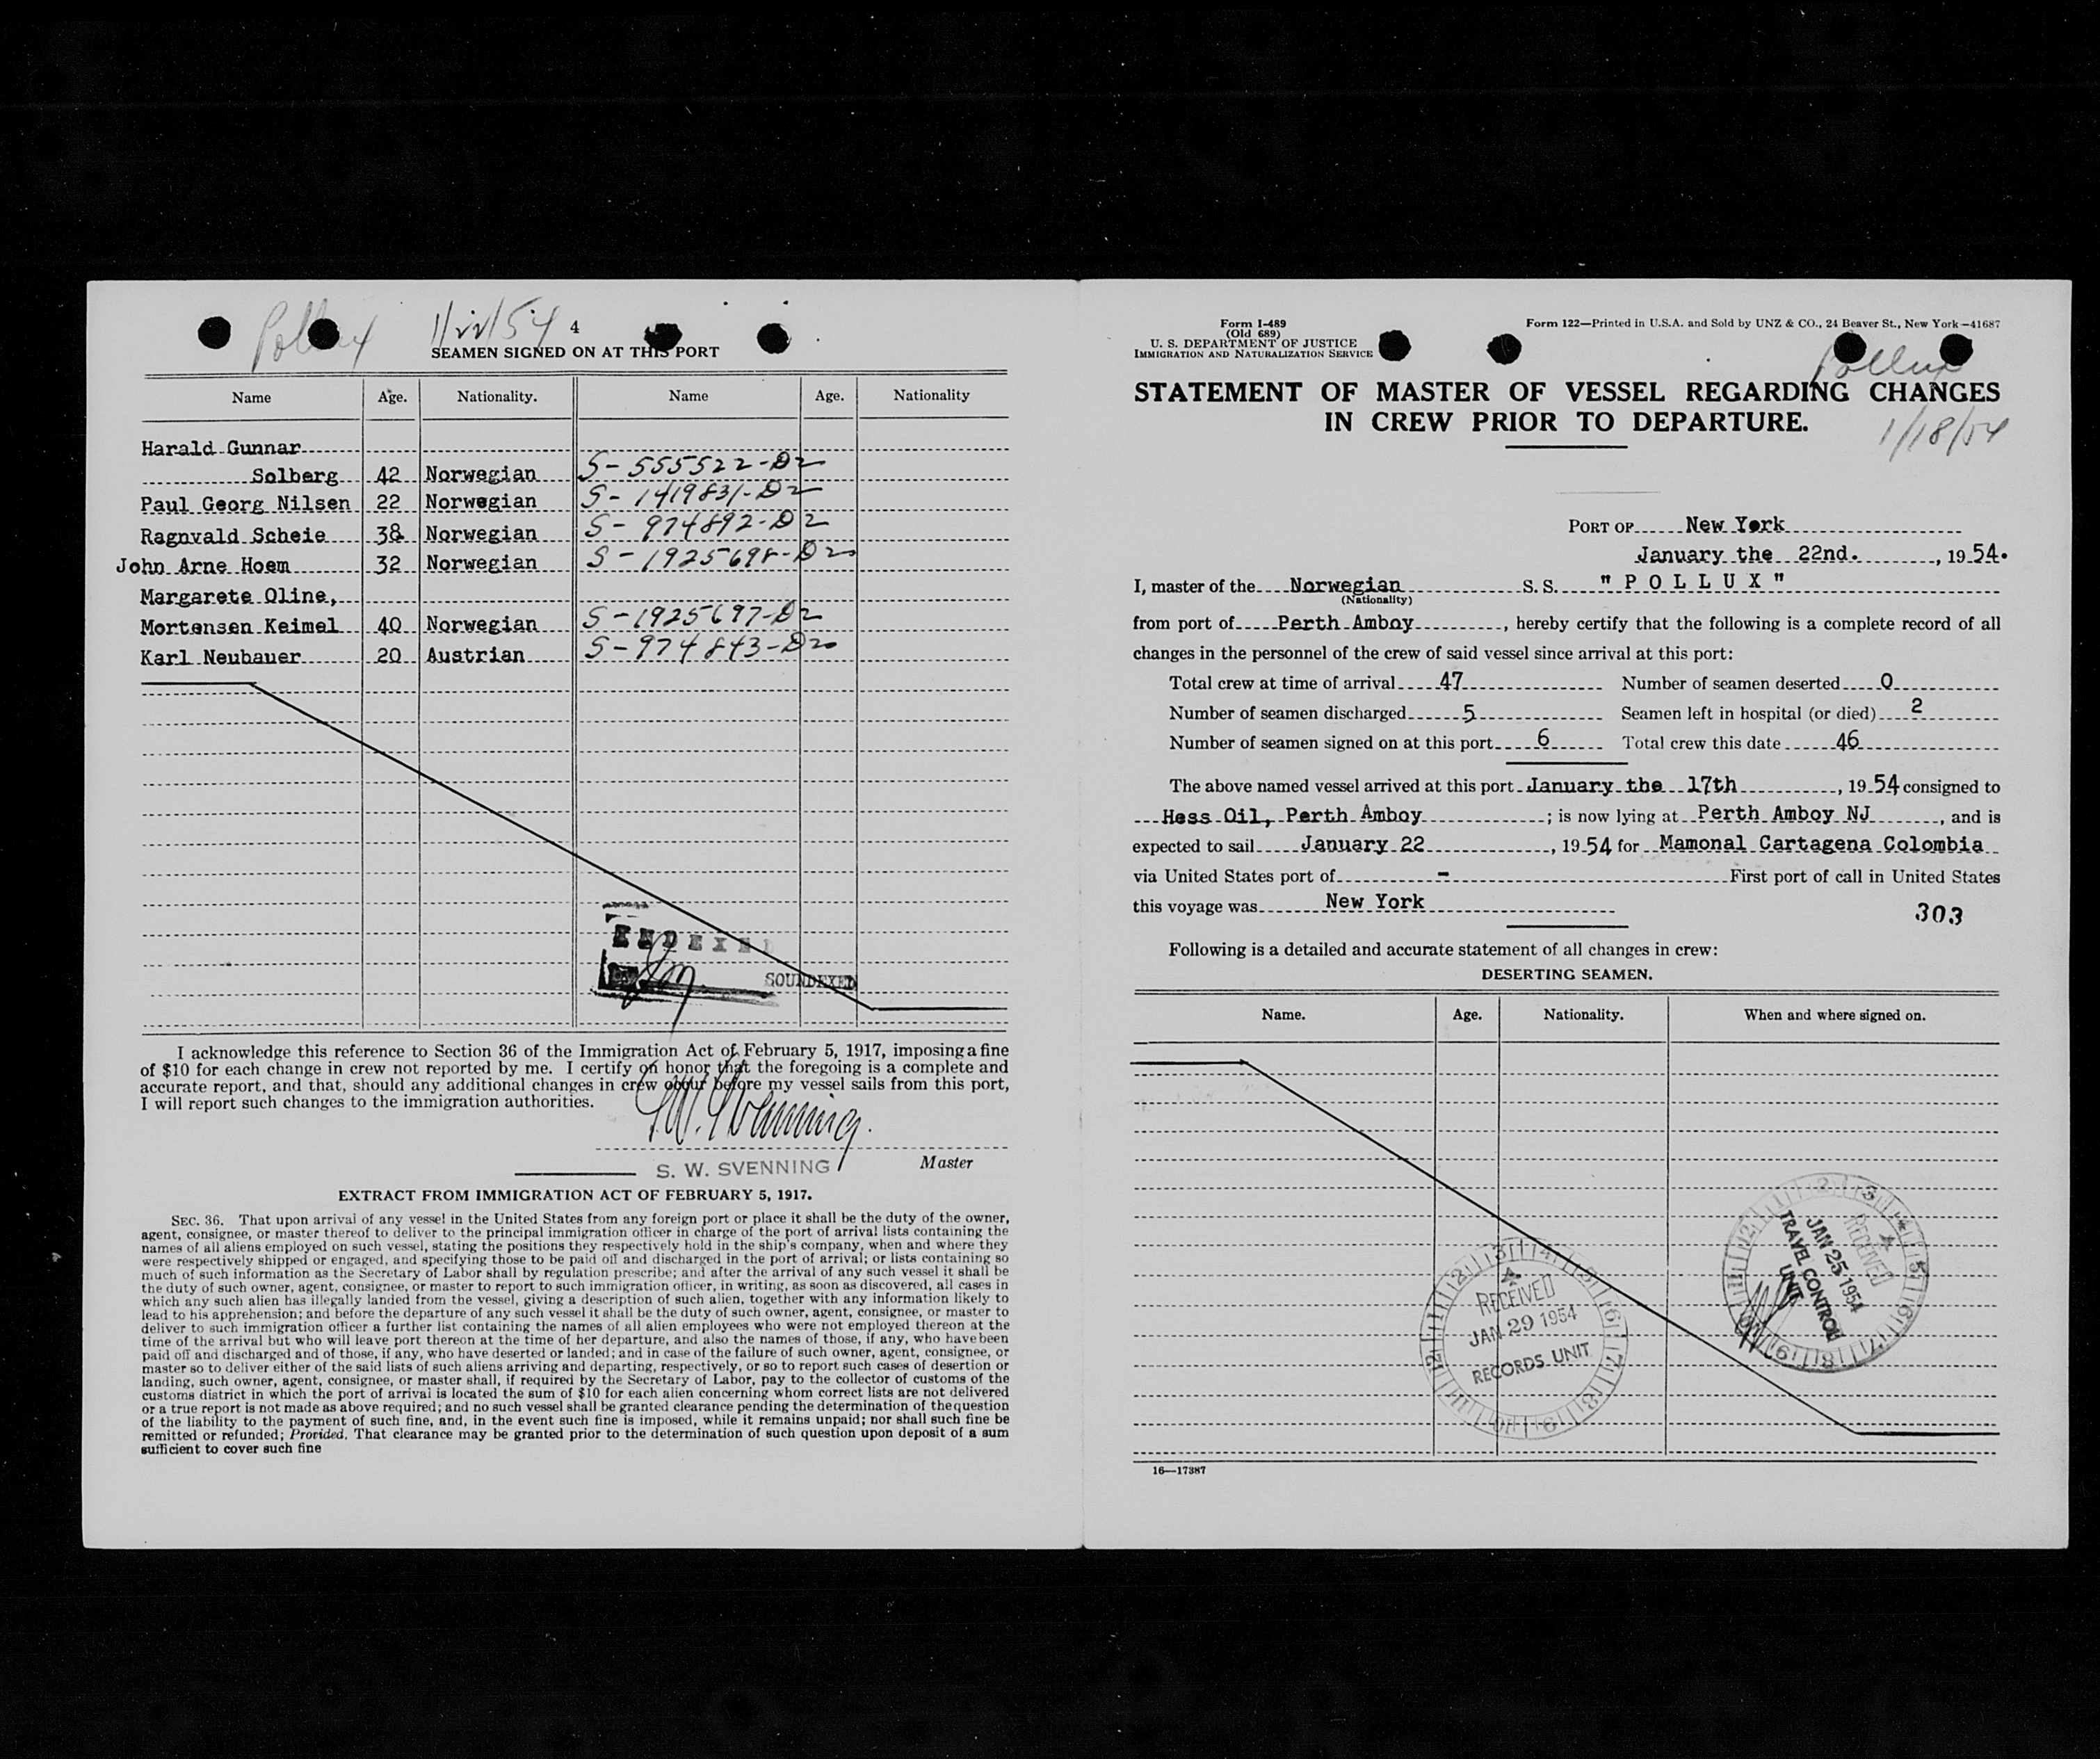 Pollux 1/22/54 4
SEAMEN SIGNED ON AT THIS PORT
Name Age. Nationality. Name Age. Nationality
Harald Gunnar
Solberg 42 Norwegian S-555522-D2
Paul Georg Nilsen 22 Norwegian S-1419831-D2
Ragnvald Scheie 38 Norwegian S-974892-D2
John Arne Hoem 32 Norwegian S-1925698-D2
Margarete Oline,
Mortensen Keimel 40 Norwegian S-1925697-D2
Karl Neubauer 20 Austrian S-974843-D2
INDEXED
SOUNDEXED
I acknowledge this reference to Section 36 of the Immigration Act of February 5, 1917, imposing a fine
of $10 for each change in crew not reported by me. I certify on honor that the foregoing is a complete and
accurate report, and that, should any additional changes in crew occur before my vessel sails from this port,
I will report such changes to the immigration authorities.
S.W. Svenning
S. W. SVENNING Master
EXTRACT FROM IMMIGRATION ACT OF FEBRUARY 5, 1917.
SEC. 36. That upon arrival of any vessel in the United States from any foreign port or place it shall be the duty of the owner,
agent, consignee, or master thereof to deliver to the principal immigration officer in charge of the port of arrival lists containing the
names of all aliens employed on such vessel, stating the positions they respectively hold in the ship's company, when and where they
were respectively shipped or engaged, and specifying those to be paid off and discharged in the port of arrival; or lists containing so
much of such information as the Secretary of Labor shall by regulation prescribe; and after the arrival of any such vessel it shall be
the duty of such owner, agent, consignee, or master to report to such immigration officer, in writing, as soon as discovered, all cases in
which any such alien has illegally landed from the vessel, giving a description of such alien, together with any information likely to
lead to his apprehension; and before the departure of any such vessel it shall be the duty of such owner, agent, consignee, or master to
deliver to such immigration officer a further list containing the names of all alien employees who were not employed thereon at the
time of the arrival but who will leave port thereon at the time of her departure, and also the names of those, if any, who have been
paid off and discharged and of those, if any, who have deserted or landed; and in case of the failure of such owner, agent, consignee, or
master so to deliver either of the said lists of such aliens arriving and departing, respectively, or so to report such cases of desertion or
landing, such owner, agent, consignee, or master shall, if required by the Secretary of Labor, pay to the collector of customs of the
customs district in which the port of arrival is located the sum of $10 for each alien concerning whom correct lists are not delivered
or a true report is not made as above required; and no such vessel shall be granted clearance pending the determination of the question
of the liability to the payment of such fine, and, in the event such fine is imposed, while it remains unpaid; nor shall such fine be
remitted or refunded; Provided, That clearance may be granted prior to the determination of such question upon deposit of a sum
sufficient to cover such fine
Form I-489
(Old 689)
U. S. DEPARTMENT OF JUSTICE
IMMIGRATION AND NATURALIZATION SERVICE
Form 122—Printed in U.S.A. and Sold by UNZ & CO., 24 Beaver St., New York—41687
Pollux
STATEMENT OF MASTER OF VESSEL REGARDING CHANGES
IN CREW PRIOR TO DEPARTURE.
1/18/54
PORT OF New York
January the 22nd. , 19 54.
I, master of the Norwegian S. S. "POLLUX"
(Nationality)
from port of Perth Amboy , hereby certify that the following is a complete record of all
changes in the personnel of the crew of said vessel since arrival at this port:
Total crew at time of arrival 47 Number of seamen deserted 0
Number of seamen discharged 5 Seamen left in hospital (or died) 2
Number of seamen signed on at this port 6 Total crew this date 46
The above named vessel arrived at this port January the 17th , 19 54 consigned to
Hess Oil, Perth Amboy ; is now lying at Perth Amboy NJ , and is
expected to sail January 22 , 19 54 for Mamonal Cartagena Colombia
via United States port of - First port of call in United States
this voyage was New York
303
Following is a detailed and accurate statement of all changes in crew:
DESERTING SEAMEN.
Name. Age. Nationality. When and where signed on.
RECEIVED
JAN 25 1954
TRAVEL CONTROL
UNIT
RECEIVED
JAN 29 1954
RECORDS UNIT
16—17387